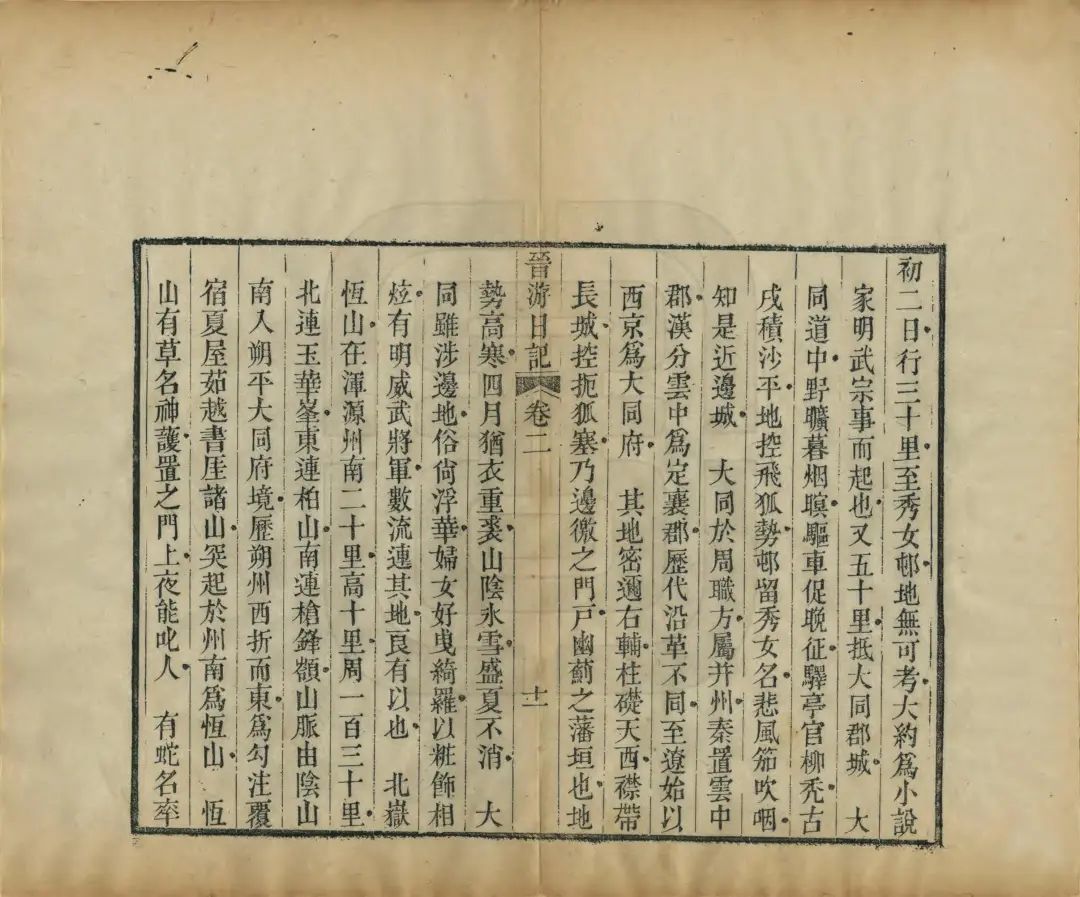 初二日行三十里至秀女邨地無可考大約爲小說
家明武宗事而起也又五十里抵大同郡城　大
同道中野曠暮烟暝驅車促晚征驛亭官柳禿古
戌積沙平地控飛狐勢邨留秀女名悲風笳吹咽
知是近邊城　大同於周職方屬幷州秦置雲中
郡漢分雲中爲定襄郡歷代沿革不同至遼始以
西京爲大同府　其地密邇右輔柱礎天西襟帶
長城控扼狐塞乃邊徼之門戸幽薊之藩垣也地
晉游日記　卷二　十一
勢高寒四月猶衣重裘山陰氷雪盛夏不消　大
同雖涉邊地俗尙浮華婦女好曳綺羅以粧飾相
炫有明威武將軍數流連其地良有以也　北嶽
恆山在渾源州南二十里高十里周一百三十里
北連玉華峯東連柏山南連槍鋒嶺山脈由陰山
南入朔平大同府境歷朔州西折而東爲勾注覆
宿夏屋茹越書厓諸山突起於州南爲恆山　恆
山有草名神護置之門上夜能叱人　有蛇名率